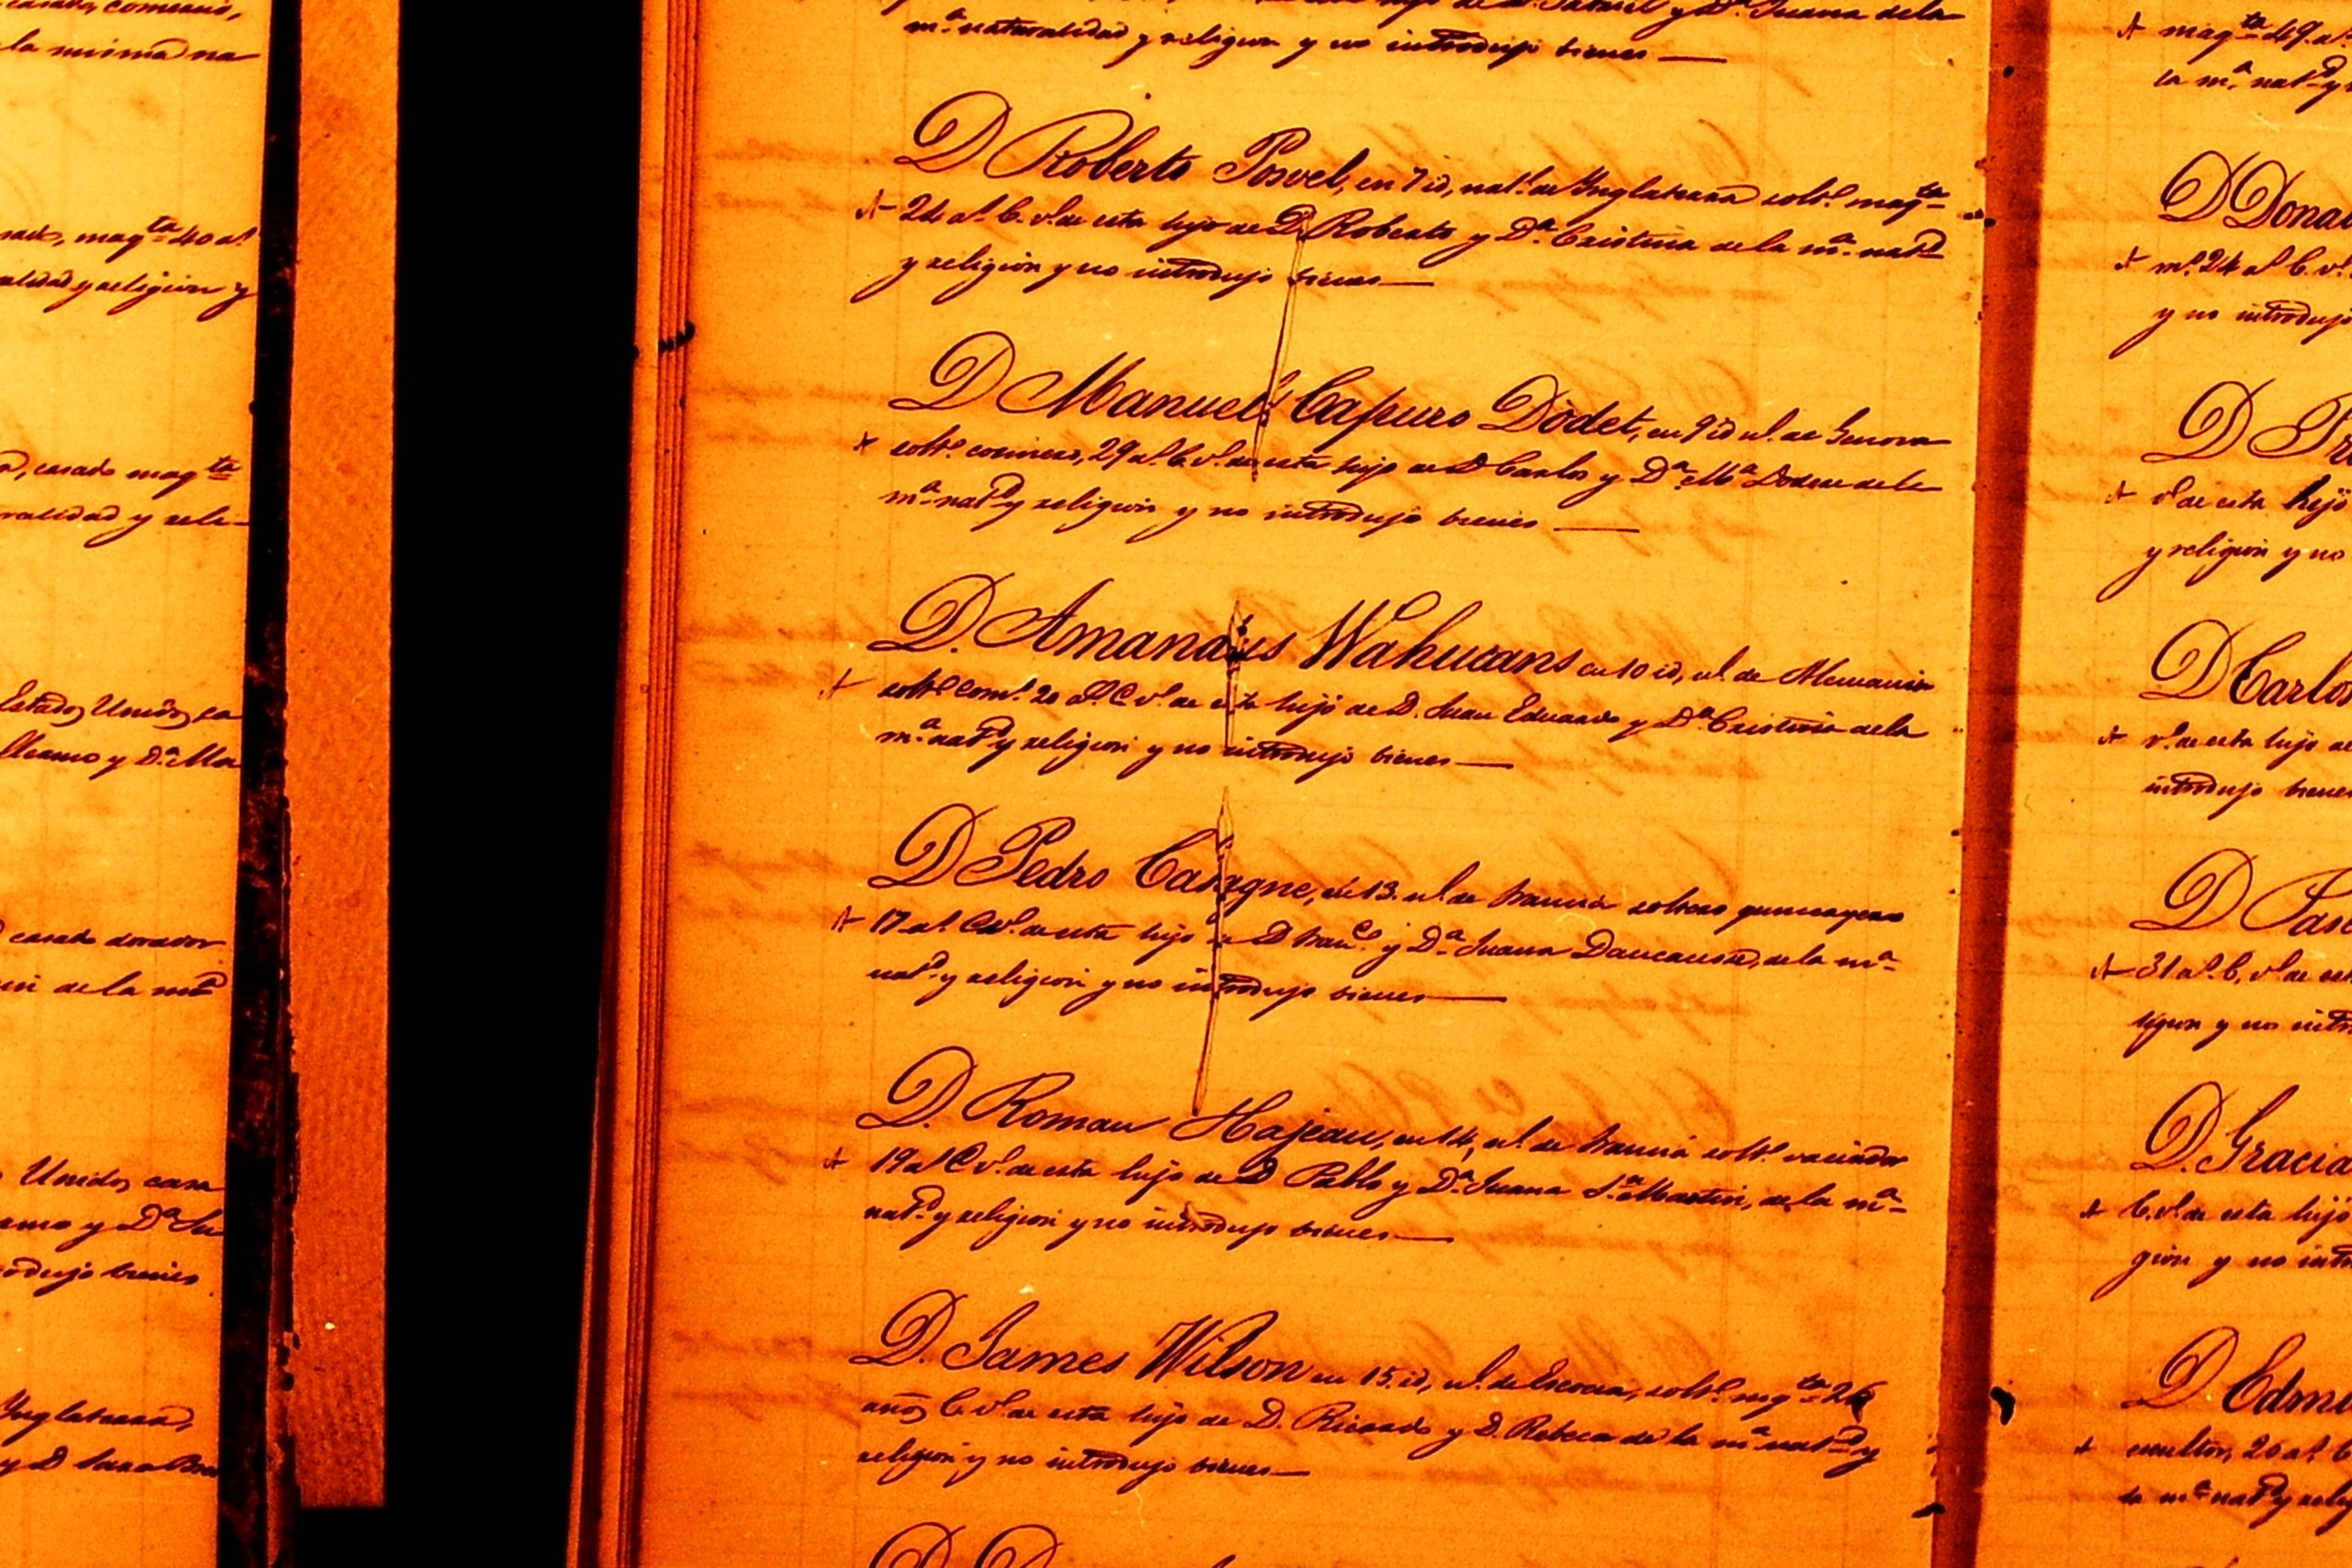 casado, comercio,
la misma na
mag.ta 40 a.s
alidad y religion y
casado mag.ta
ralidad y reli-
Estados Unidos, ca
y D.a Ma
casado dorador
de la m.a
Unidos, casa
y D.a Ju
rodujo bienes
Inglaterra,
y D.
hijo de D. Gabriel y D.a Juana de la
m.a naturalidad y religion y no introdujo bienes —
D Roberto Powel, en 7 id, nat.l de Inglaterra solt.o maq.ta
24 a.s C. v.o de esta hijo de D. Roberto y D.a Cristina de la m.a nat.d
y religion y no introdujo bienes —
D Manuel Capuro Dodet, en 9 id n.l de Genova
solt.o cocinero, 29 a.s C. v.o de esta hijo de D Carlos y D.a M.a de la
m.a nat.d y religion y no introdujo bienes —
D. Amandus en 10 id, n.l de Alemania
solt.o com.o 20 a.s C v.o de esta hijo de D. Juan Eduardo y D.a Cristina de la
m.a nat.d y religion y no introdujo bienes —
D Pedro Casagne, en 13. n.l de Francia soltero
17 a.s C v.o de esta hijo de D Fran.co y D.a Juana de la m.a
nat.d y religion y no introdujo bienes —
D. Roman Hajeau, en 14, n.l de Francia solt.o vaciador
19 a.s C v.o de esta hijo de D Pablo y D.a Juana S.n Martin, de la m.a
nat.d y religion y no introdujo bienes —
D. James Wilson en 15. id, n.l de Escocia, solt.o mq.ta 26
años C. v.o de esta hijo de D. Ricardo y D. Rebeca de la m.a nat.d y
religion y no introdujo bienes —
maq.ta 49. a.s
la m.a nat.d y
D Dona
24 a.s C. v.o
y no introdujo
D
v.o de esta hijo
y religion y no
D Carlos
v.o de esta hijo de
introdujo bienes
D
31 a.s C. v.o de est
ligion y no intro
D. Gracia
C. v.o de esta hijo
gion y no intro
D Edm
20 a.s
la m.a nat.d y relig